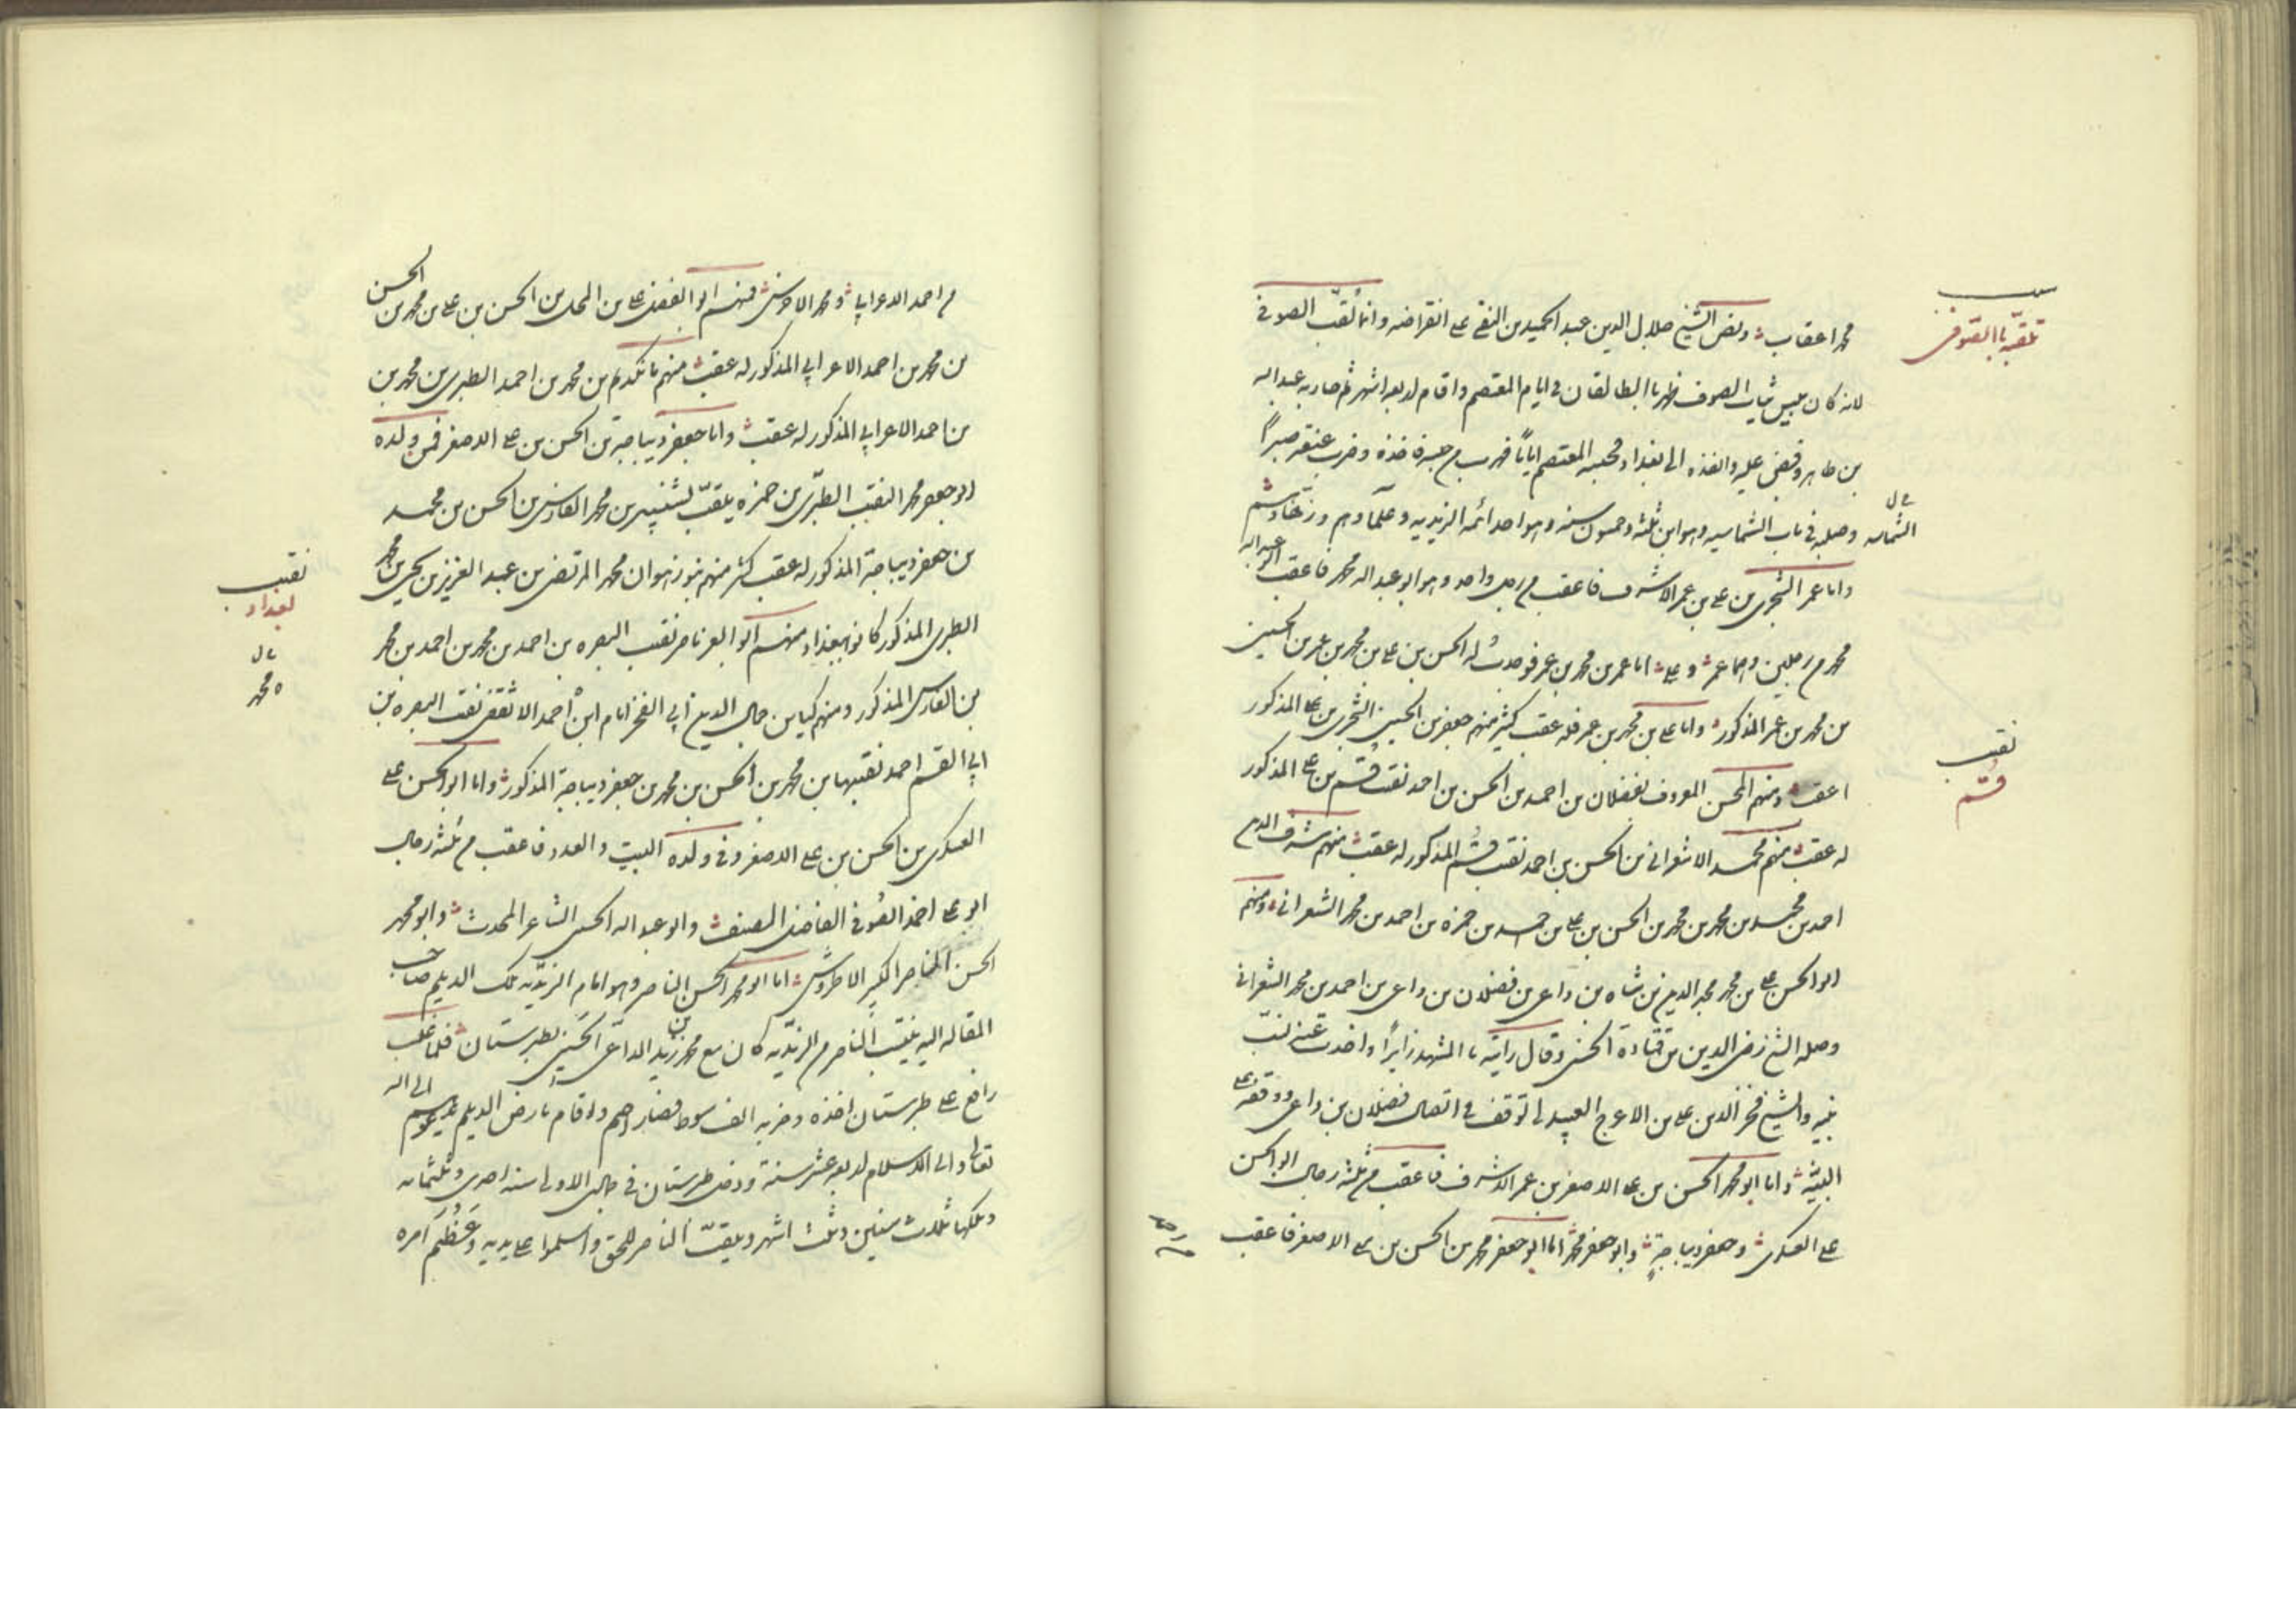 محمد اعقاب ونص الشيخ جلال الدين عبد الحميد بن التقي على انقراضه وانما لقب الصوفي
لانه كان يلبس ثياب الصوف ظهر بالطالقان في ايام المعتصم واقام اربعة اشهر ثم حاربه عبد الله
بن طاهر وقبض عليه وانفذه الى بغداد فحبسه المعتصم اياما فهرب من حبسه فاخذه وضرب عنقه صبرا
وصلبه في باب الشماسيه وهو ابن ثلثه وخمسون سنه وهو احد ائمه الزيديه وعلماؤهم وزهادهم
واما عمر الشجري بن علي بن عمر الاشرف فاعقب من رجل واحد وهو ابو عبد الله محمد فاعقب ابو عبد الله
محمد من رجلين وهما عمر وعلي اما عمر بن محمد بن عمر فوجدت له الحسن بن علي بن محمد بن عمر بن الحسين
بن محمد بن عمر المذكور واما علي بن محمد بن عمر فله عقب كثير منهم جعفر بن الحسين الشجري بن علي المذكور
اعقب ومنهم المحسن المعروف بفضلان بن احمد بن الحسن بن احمد نقيب قم بن علي المذكور
له عقب منهم محمد الاشعراني بن الحسن بن احمد نقيب قم المذكور له عقب منهم شرف الدين
احمد بن محمد بن محمد بن محمد بن الحسن بن علي بن حمزه بن احمد بن محمد الشعراني ومنهم
ابو الحسن علي بن محمد مجد الدين بن شاه بن داعي بن فضلان بن داعي بن احمد بن محمد الشعراني
وصله الشيخ رضي الدين بن قتاده الحسني وقال رايته بالمشهد زايرا واخذت عنه نسب
بنيه والشيخ فخر الدين علي بن الاعرج العبيدلي توقف في اتصال فضلان بن داعي ووقفه على
البينه واما ابو محمد الحسن بن علي الاصغر بن عمر الاشرف فاعقب من ثلثه رجال ابو الحسن
علي العسكري وجعفر ديباجة وابو جعفر محمد اما ابو جعفر محمد بن الحسن بن علي الاصغر فاعقب
نقيب
قم
الشماسيه
من احمد الاعرابي ومحمد منهم ابو الفضل علي بن الحسن بن علي بن محمد بن الحسن
بن محمد بن احمد الاعرابي المذكور له عقب منهم مانكديم بن محمد بن احمد الطبري بن محمد بن
بن احمد الاعرابي المذكور له عقب واما جعفر ديباجة بن الحسن بن علي الاصغر فمن ولده
ابو جعفر محمد النقيب الطبري بن حمزه يلقب بن محمد الفارس بن الحسن بن محمد
بن جعفر ديباجة المذكور له عقب كثير منهم محمد المرتضى بن عبد العزيز بن يحيى بن محمد
الطبري المذكور كانوا ببغداد ومنهم ابو العز ناصر نقيب البصره بن احمد بن محمد بن احمد بن محمد
بن الفارس المذكور ومنهم كيا بن جمال الدين ابي الفخر ابن احمد نقيب البصره بن
ابي القسم احمد نقيبها بن محمد بن الحسن بن محمد بن جعفر ديباجة المذكور واما ابو الحسن علي
العسكري بن الحسن بن علي الاصغر وفي ولده البيت والعدد فاعقب من ثلثه رجال
ابو علي احمد الصوفي الفاضل المصنف وابو عبد الله الحسين الشاعر المحدث وابو محمد
الحسن الناصر الكبير الاطروش اما ابو محمد الحسن الناصر وهو امام الزيديه ملك الديلم صاحب
المقاله اليه ينتسب الناصر من الزيديه كان مع محمد بن زيد الداعي الحسني بطبرستان فلما غلب
رافع على طبرستان اخذه وضربه الف سوط فصار اصم واقام بارض الديلم يدعوهم الى الله
تعالى والى الاسلام اربعه عشر سنة ودخل طبرستان في جمادى الاولى سنه احدى وثلثمائه
وملكها ثلاث سنين وثلث اشهر ويلقب الناصر للحق واسلموا على يديه وعظم امره
نقيب
بغداد
محمد